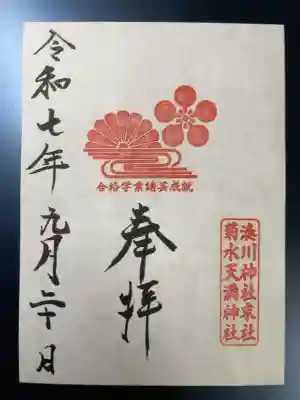 奉拝
合格学業諸芸成就
湊川神社末社
菊水天満神社
令和七年九月二十日